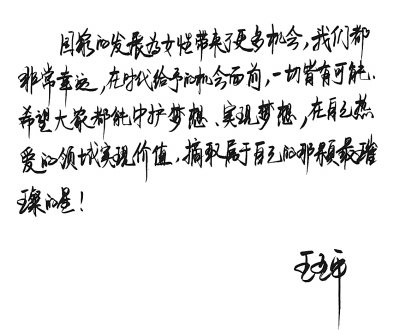 国家的发展为女性带来了更多机会,我们都
非常幸运,在时代给予的机会面前,一切皆有可能.
希望大家都能守护梦想、实现梦想,在自己热
爱的领域实现价值,摘取属于自己的那颗最璀
璨的星!
王亚平